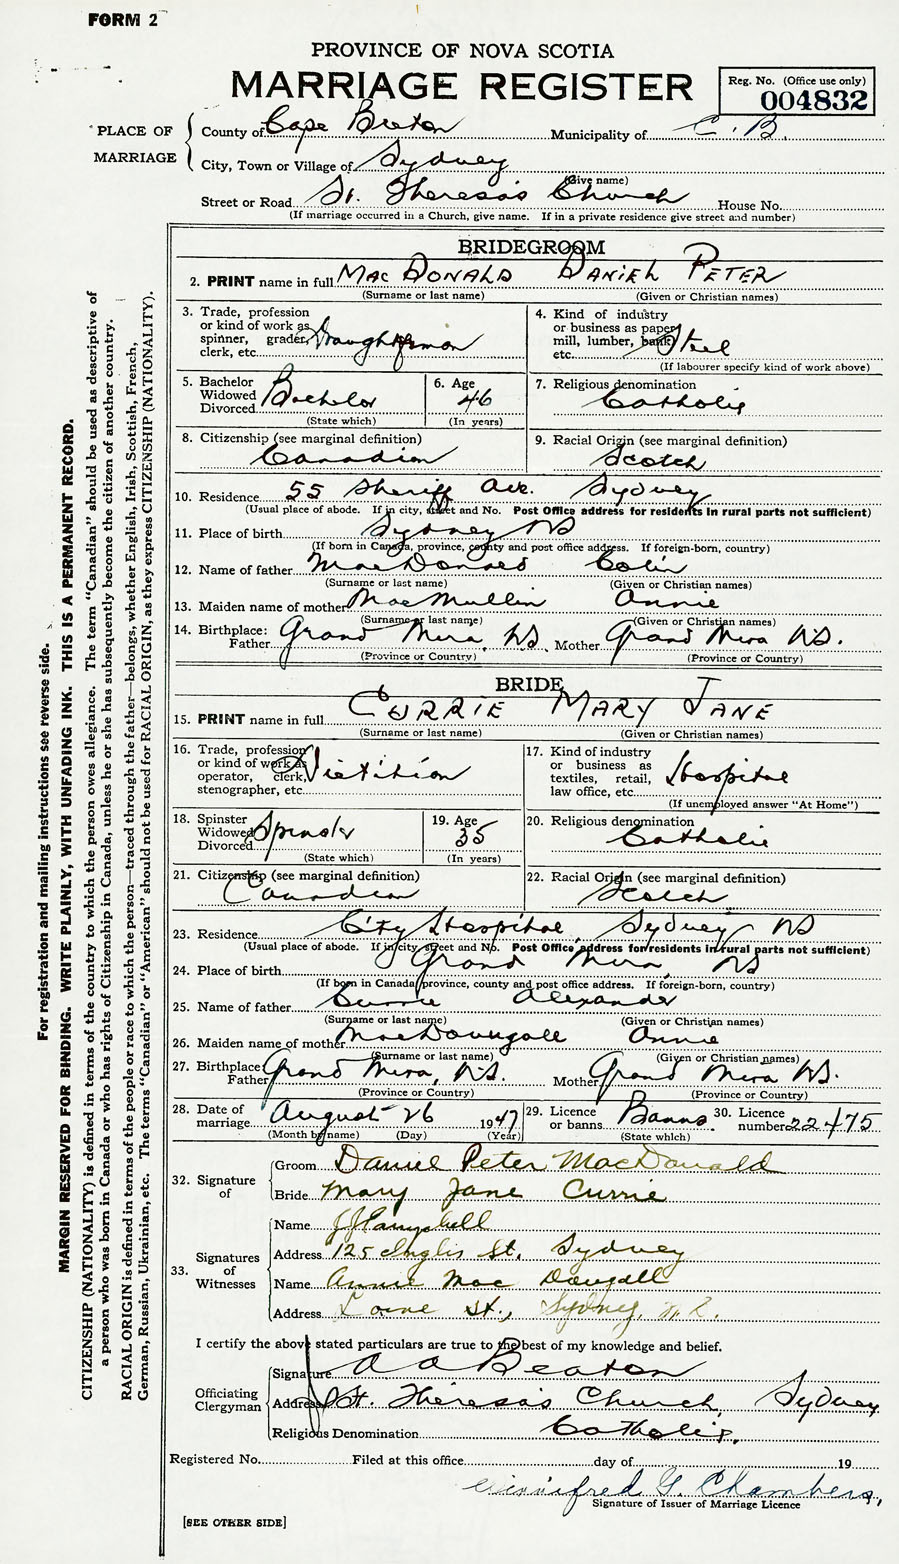 FORM 2
PROVINCE OF NOVA SCOTIA
MARRIAGE REGISTER
Reg. No. (Office use only)
004832
PLACE OF MARRIAGE
County of Cape Breton Municipality of C. B.
City, Town or Village of Sydney
(Give name)
Street or Road St. Theresa's Church House No.
(If marriage occurred in a Church, give name. If in a private residence give street and number)
BRIDEGROOM
2. PRINT name in full MacDONALD DANIEL PETER
(Surname or last name) (Given or Christian names)
3. Trade, profession or kind of work as spinner, grader, clerk, etc. Draughtsman
4. Kind of industry or business as paper mill, lumber, bank, etc. Steel
(If labourer specify kind of work above)
5. Bachelor Widowed Divorced Bachelor
(State which)
6. Age 46
(In years)
7. Religious denomination Catholic
8. Citizenship (see marginal definition) Canadian
9. Racial Origin (see marginal definition) Scotch
10. Residence 55 Sheriff Ave. Sydney
(Usual place of abode. If in city, street and No. Post Office address for residents in rural parts not sufficient)
11. Place of birth Sydney NS
(If born in Canada, province, county and post office address. If foreign-born, country)
12. Name of father MacDonald Colin
(Surname or last name) (Given or Christian names)
13. Maiden name of mother MacMullin Annie
(Surname or last name) (Given or Christian names)
14. Birthplace: Father Grand Mira, NS. Mother Grand Mira NS.
(Province or Country) (Province or Country)
BRIDE
15. PRINT name in full CURRIE MARY JANE
(Surname or last name) (Given or Christian names)
16. Trade, profession or kind of work as operator, clerk, stenographer, etc. Dietitian
17. Kind of industry or business as textiles, retail, law office, etc. Hospital
(If unemployed answer "At Home")
18. Spinster Widowed Divorced Spinster
(State which)
19. Age 35
(In years)
20. Religious denomination Catholic
21. Citizenship (see marginal definition) Canadian
22. Racial Origin (see marginal definition) Scotch
23. Residence City Hospital, Sydney NS
(Usual place of abode. If in city, street and No. Post Office address for residents in rural parts not sufficient)
24. Place of birth Grand Mira, NS
(If born in Canada, province, county and post office address. If foreign-born, country)
25. Name of father Currie Alexander
(Surname or last name) (Given or Christian names)
26. Maiden name of mother MacDougall Annie
(Surname or last name) (Given or Christian names)
27. Birthplace: Father Grand Mira, NS. Mother Grand Mira NS.
(Province or Country) (Province or Country)
28. Date of marriage August 26 1947
(Month by name) (Day) (Year)
29. Licence or banns Banns.
(State which)
30. Licence number 22475
32. Signature of
Groom Daniel Peter MacDonald
Bride Mary Jane Currie
33. Signatures of Witnesses
Name J J Campbell
Address 125 Inglis St. Sydney
Name Annie Mac Dougall
Address Lorne St., Sydney, N.S.
I certify the above stated particulars are true to the best of my knowledge and belief.
Officiating Clergyman
Signature A A Beaton
Address St. Theresa's Church, Sydney
Religious Denomination Catholic.
Registered No. Filed at this office day of 19
Winnifred G. Chambers,
Signature of Issuer of Marriage Licence
[SEE OTHER SIDE]
For registration and mailing instructions see reverse side.
MARGIN RESERVED FOR BINDING. WRITE PLAINLY, WITH UNFADING INK. THIS IS A PERMANENT RECORD.
CITIZENSHIP (NATIONALITY) is defined in terms of the country to which the person owes allegiance. The term "Canadian" should be used as descriptive of
a person who was born in Canada or who has rights of Citizenship in Canada, unless he or she has subsequently become the citizen of another country.
RACIAL ORIGIN is defined in terms of the people or race to which the person—traced through the father—belongs, whether English, Irish, Scottish, French,
German, Russian, Ukrainian, etc. The terms "Canadian" or "American" should not be used for RACIAL ORIGIN, as they express CITIZENSHIP (NATIONALITY).